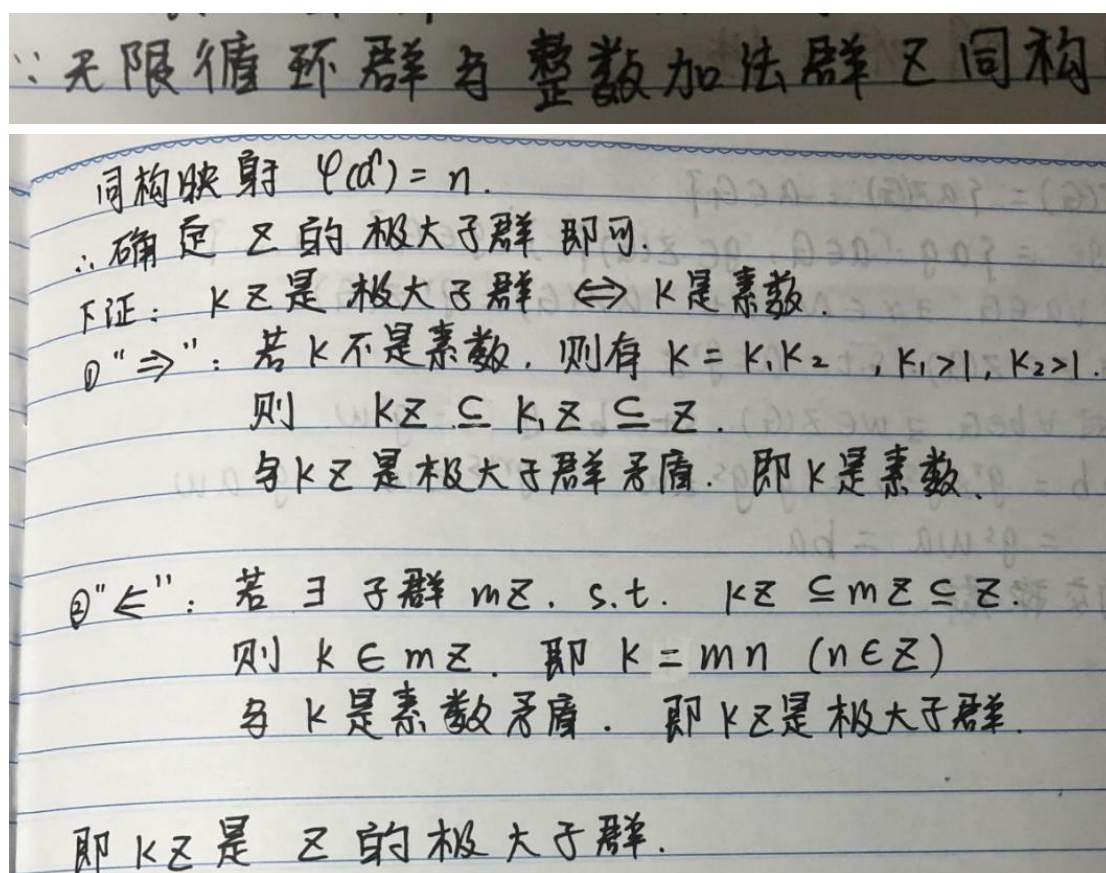 ∵无限循环群与整数加法群Z同构
同构映射 φ(aⁿ) = n.
∴确定 Z 的极大子群即可.
下证: KZ是极大子群 ⇔ K是素数.
①"⇒": 若K不是素数. 则有 K = K₁K₂, K₁>1, K₂>1.
则 KZ ⊆ K₁Z ⊆ Z.
与KZ是极大子群矛盾. 即K是素数.
②"⇐": 若∃子群mZ. s.t. KZ ⊆ mZ ⊆ Z.
则 K ∈ mZ. 即 K = mn (n∈Z)
与K是素数矛盾. 即KZ是极大子群.
即KZ是 Z 的极大子群.